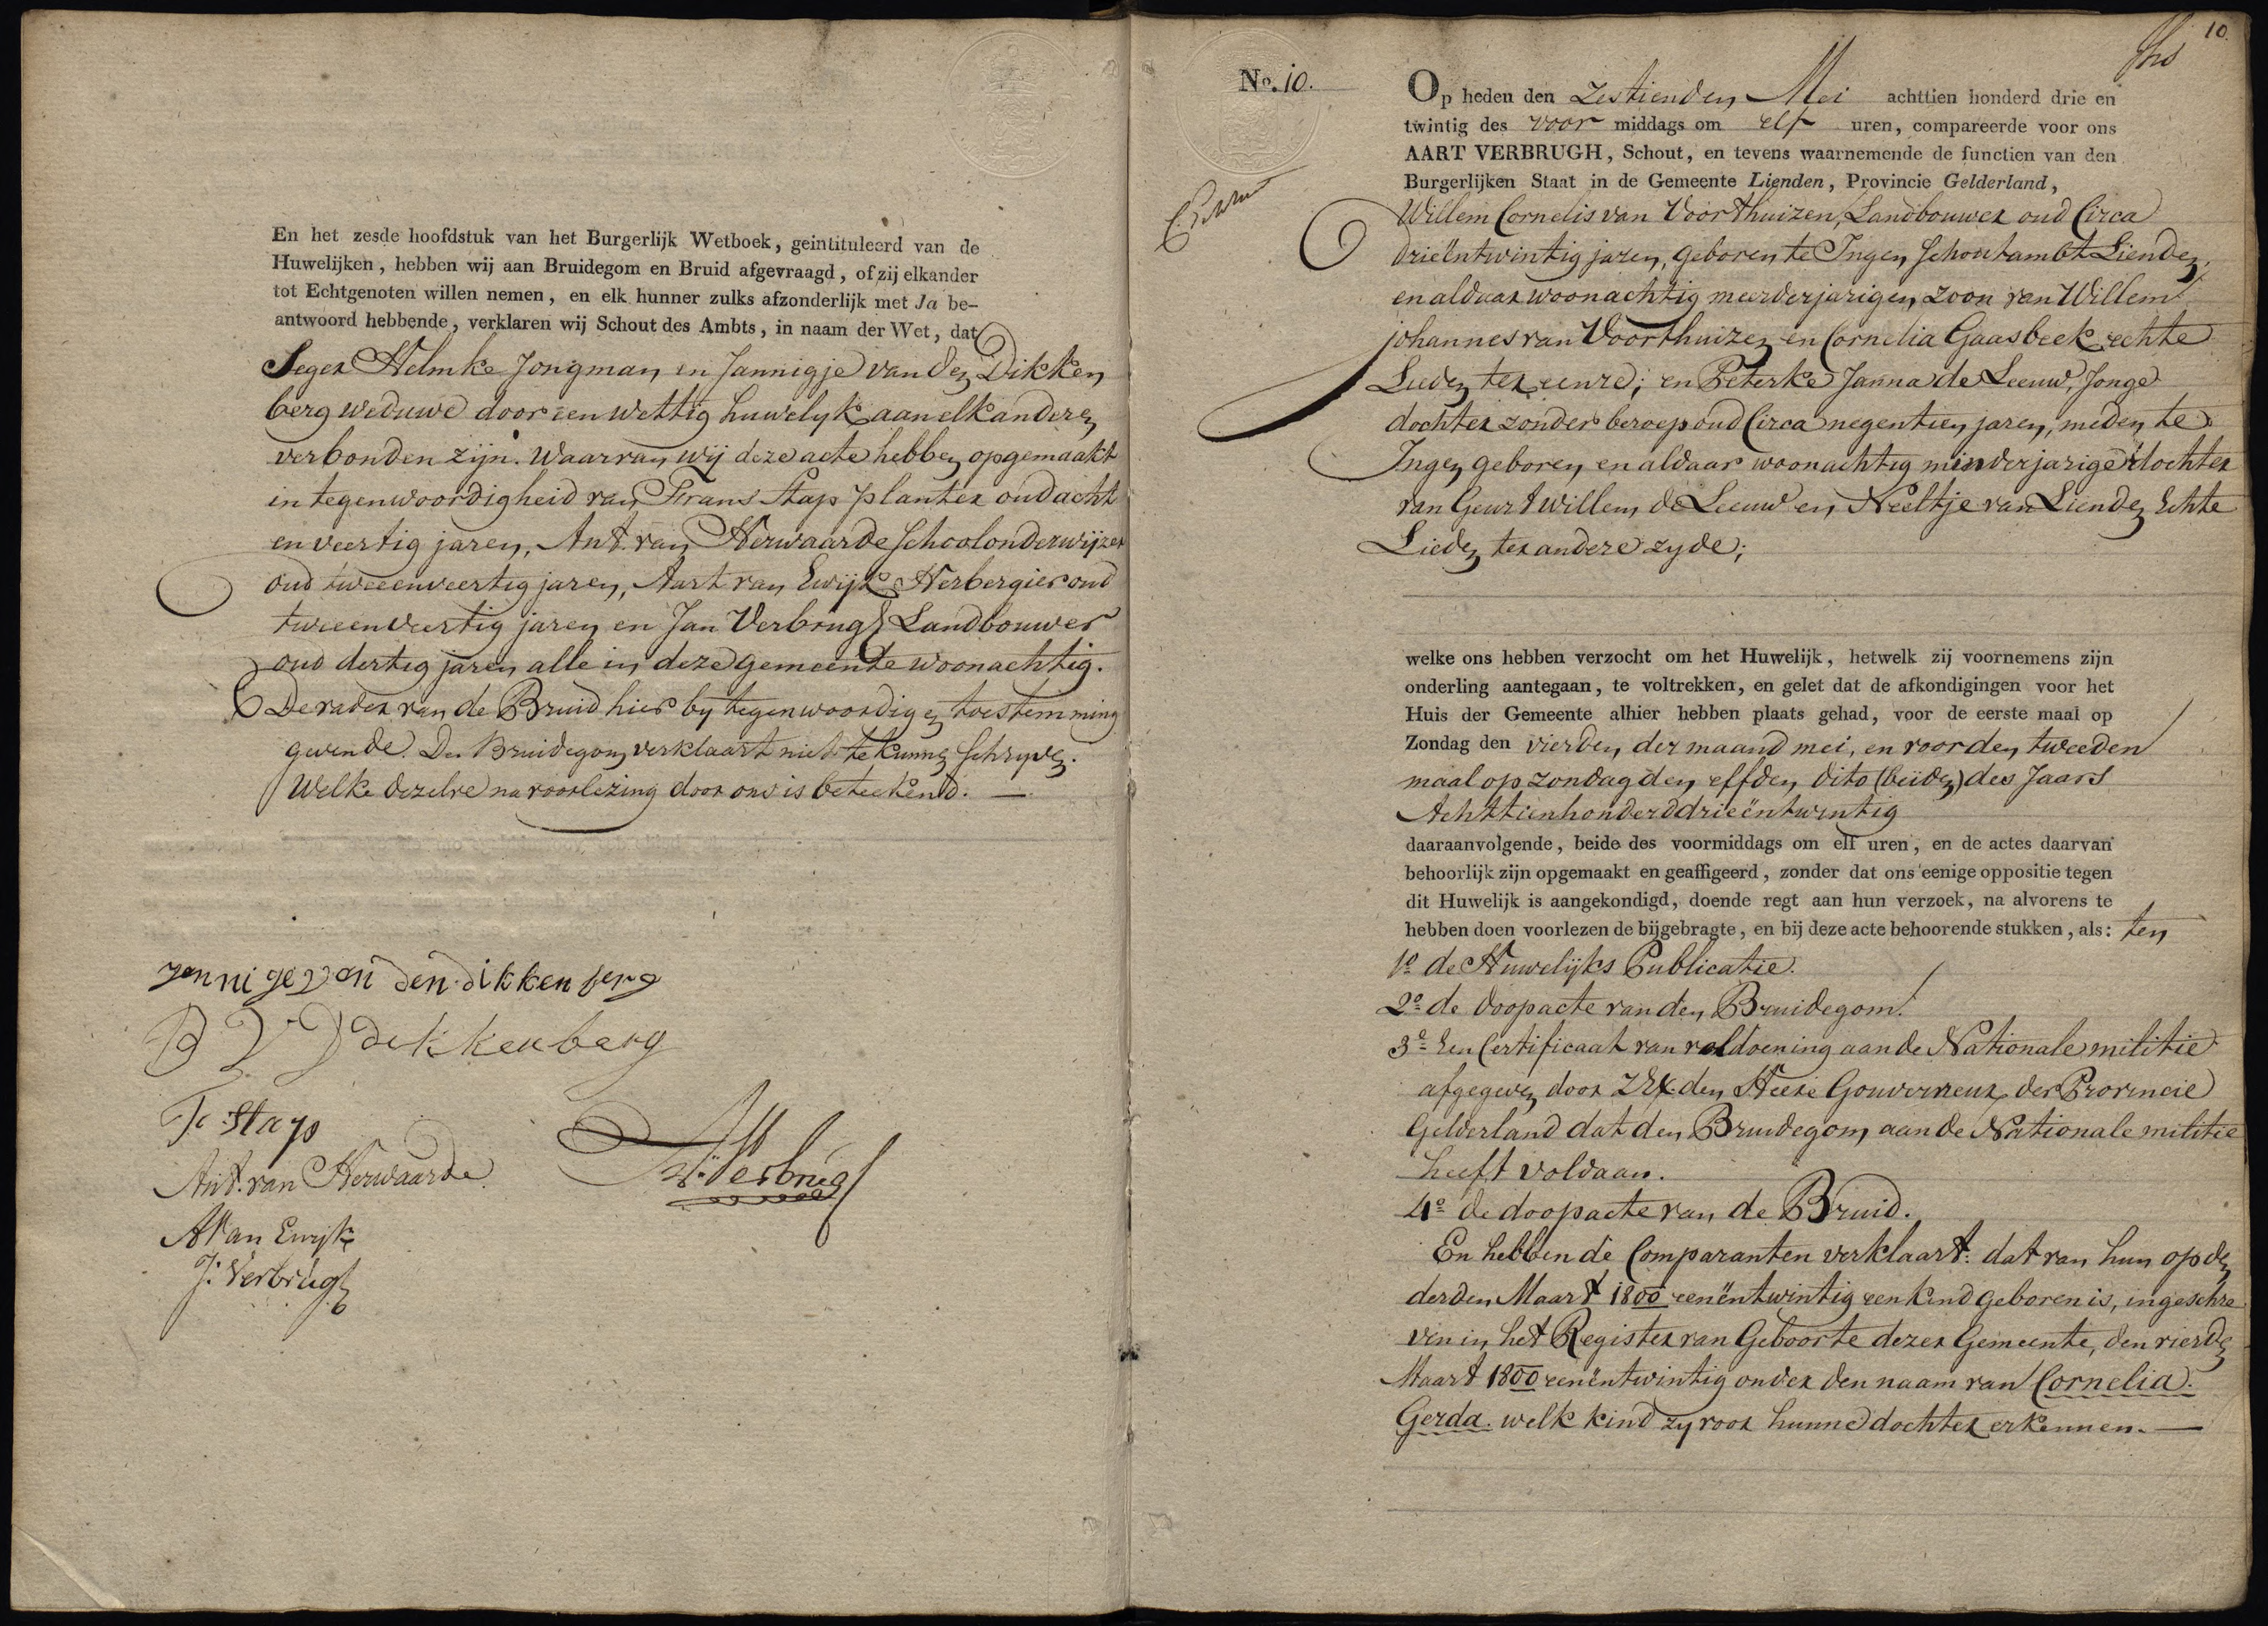 En het zesde hoofdstuk van het Burgerlijk Wetboek, geintituleerd van de
Huwelijken, hebben wij aan Bruidegom en Bruid afgevraagd, of zij elkander
tot Echtgenoten willen nemen, en elk hunner zulks afzonderlijk met Ja be-
antwoord hebbende, verklaren wij Schout des Ambts, in naam der Wet, dat
Seger Helmke Jongman en Jannigje van den Dikken
berg weduwe door een wettig huwelyk aan elkanderen
verbonden zijn. Waarvan wij deze acte hebben opgemaakt
in tegenwoordigheid van Frans Stap planter oud acht
en veertig jaren, Ant. van Herwaarde Schoolonderwijzer
oud tweeenveertig jaren, Aart van Ewijk Herbergier oud
tweeenveertig jaren en Jan Verbrugh Landbouwer
oud dertig jaren alle in deze gemeente woonachtig.
De vader van de Bruid hier by tegenwoordig en toestemming
gevende. Den Bruidegom verklaart niet te kunnen schryven.
Welke dezelve na voorlezing door ons is beteekend. —
yannigevan den dikkenberg
B V D dekkenberg
F: Stap
Ant. van Herwaarde
A: Verbrugh
AVan Ewijk
J: Verbrugh
10.
No. 10.
Op heden den Zestienden Mei achttien honderd drie en
twintig des voor middags om elf uren, compareerde voor ons
AART VERBRUGH, Schout, en tevens waarnemende de functien van den
Burgerlijken Staat in de Gemeente Lienden, Provincie Gelderland,
Willem Cornelis van Voorthuizen, Landbouwer oud Circa
drieëntwintig jaren, geboren te Ingen Schoutambt Lienden,
en aldaar woonachtig meerderjarigen zoon van Willem
johannes van Voorthuizen en Cornelia Gaasbeek echte
Lieden ter eenre; en Peterke Janna de Leeuw, Jonge
dochter zonder beroep oud Circa negentien jaren, meden te
Ingen geboren en aldaar woonachtig minderjarige dochter
van Geurt willem de Leeuw en Neeltje van Lienden Echte
Lieden ter andere zyde;
welke ons hebben verzocht om het Huwelijk, hetwelk zij voornemens zijn
onderling aantegaan, te voltrekken, en gelet dat de afkondigingen voor het
Huis der Gemeente alhier hebben plaats gehad, voor de eerste maal op
Zondag den vierden der maand mei, en voor den tweeden
maal op zondag den elfden dito (beiden) des Jaars
Achttienhonderddrieëntwintig
daaraanvolgende, beide des voormiddags om elf uren, en de actes daarvan
behoorlijk zijn opgemaakt en geaffigeerd, zonder dat ons eenige oppositie tegen
dit Huwelijk is aangekondigd, doende regt aan hun verzoek, na alvorens te
hebben doen voorlezen de bijgebragte, en bij deze acte behoorende stukken, als: ten
1o de Huwelijks Publicatie.
2o de doopacte van den Bruidegom.
3o Een Certificaat van voldoening aan de Nationale militie
afgegeven door ZEx. den Heere Gouverneur der Provincie
Gelderland dat den Bruidegom aan de Nationale militie
heeft voldaan.
4o de doopacte van de Bruid.
En hebben de Comparanten verklaart: dat van hun op den
derden Maart 1800 eenëntwintig een kind geboren is, ingeschre
ven in het Register van Geboorte dezer Gemeente, den vierden
Maart 1800 eenëntwintig onder den naam van Cornelia.
Gerda. welk kind zy voor hunne dochter erkennen. —